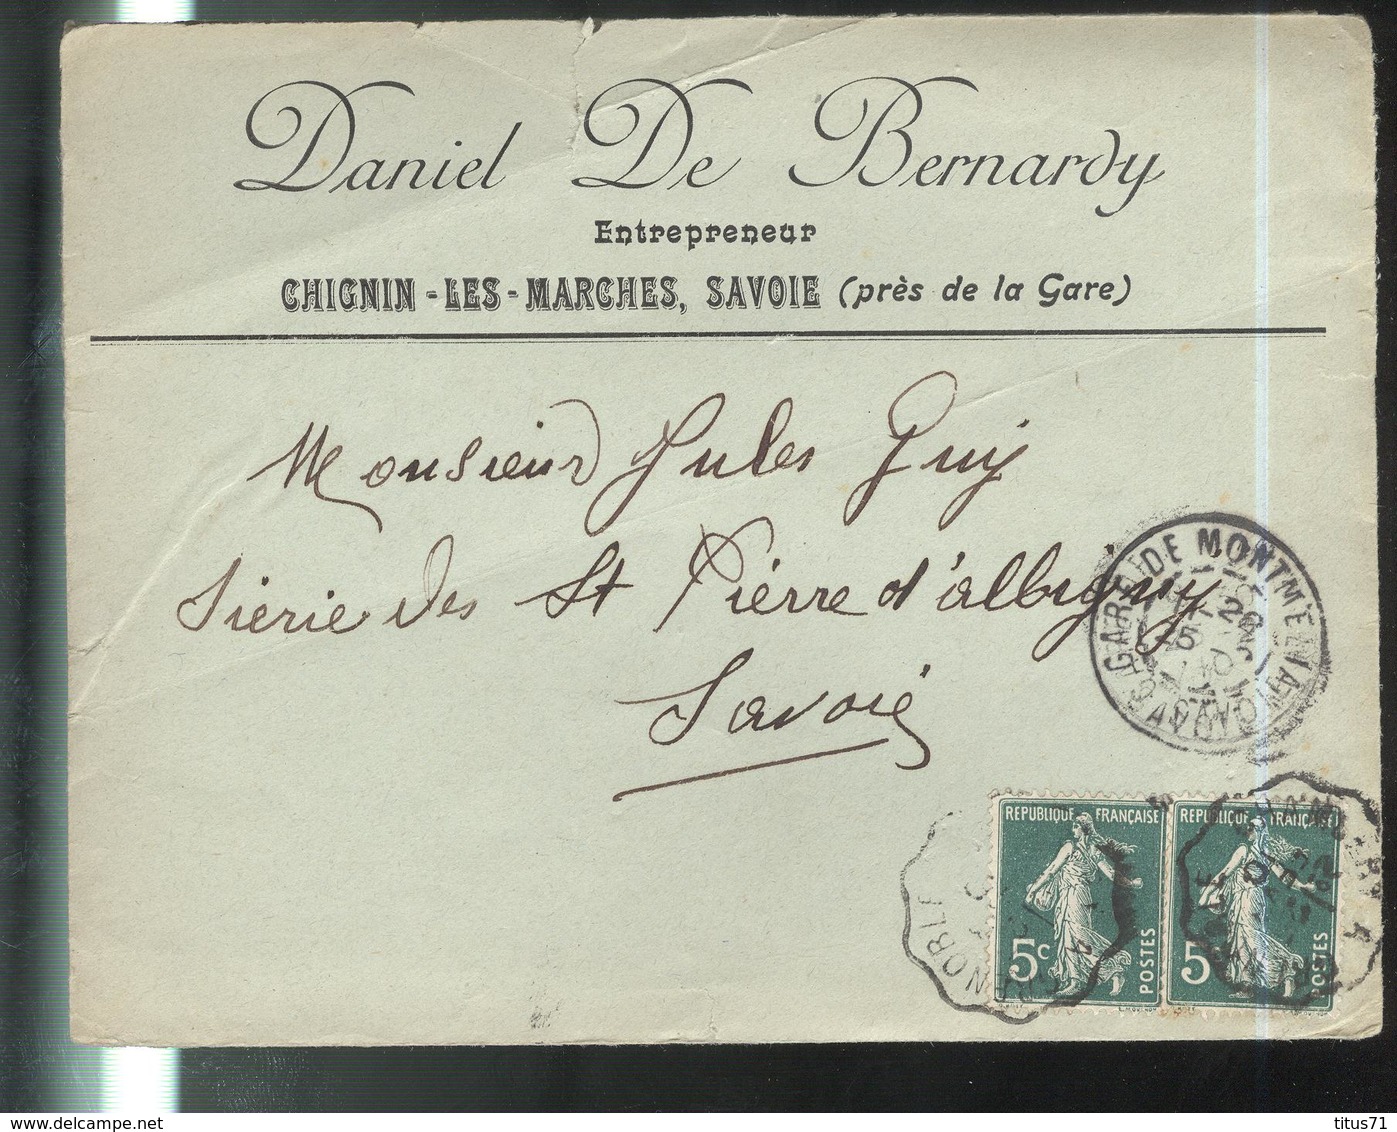 Daniel De Bernardy
Entrepreneur
CHIGNIN-LES-MARCHES, SAVOIE (près de la Gare)
Monsieur Jules Guy
Sierie des St Pierre d'albigny
Savoie
GARE DE MONTMELIAN
SAVOIE
REPUBLIQUE FRANÇAISE
5c
POSTES
REPUBLIQUE FRANÇAISE
5c
POSTES
GRENOBLE
CHAMBERY A
titus71
delcampe.net